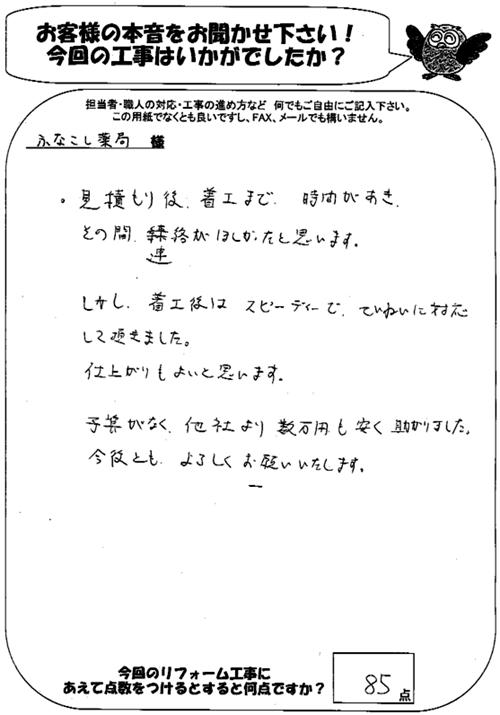 お客様の本音をお聞かせ下さい！
今回の工事はいかがでしたか？
担当者・職人の対応・工事の進め方など 何でもご自由にご記入下さい。
この用紙でなくとも良いですし、FAX、メールでも構いません。
ふなこし薬局 様
・見積もり後、着工まで、時間があき、
その間、連絡がほしかったと思います。
しかし、着工後はスピーディーで、ていねいに対応
して頂きました。
仕上がりもよいと思います。
予算がなく、他社より数万円も安く助かりました。
今後とも、よろしくお願いいたします。
今回のリフォーム工事に
あえて点数をつけるとすると何点ですか？ 85点